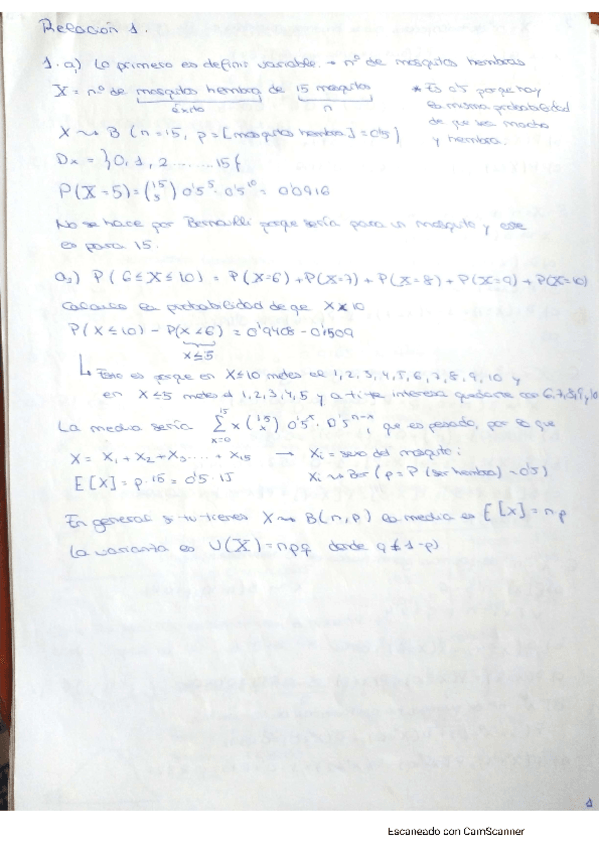 Relación 1.
1. a) Lo primero es definir variable. → nº de mosquitos hembras
X = nº de mosquitos hembra de 15 mosquitos
éxito n
* Es 0'5 porque hay
la misma probabilidad
de que sea macho
y hembra.
X ~> B (n = 15, p = [mosquitos hembra] = 0'5)
Dx = }0, 1, 2 ....... 15{
P(X = 5) = (15 5) 0'5⁵ · 0'5¹⁰ = 0'0916
No se hace por Bernoulli porque sería para un mosquito y este
es para 15.
a₂) P(6 ≤ X ≤ 10) = P(X=6) + P(X=7) + P(X=8) + P(X=9) + P(X=10)
Calculo la probabilidad de que X ≤ 10
P(X ≤ 10) - P(X < 6) = 0'9408 - 0'1509
x ≤ 5
↳ Esto es porque en X ≤ 10 metes el 1, 2, 3, 4, 5, 6, 7, 8, 9, 10 y
en X ≤ 5 metes el 1, 2, 3, 4, 5 y a ti te interesa quedarte con 6, 7, 8, 9, 10
La media sería Σ x=0 15 x (15 x) 0'5ˣ · 0'5ⁿ⁻ˣ, que es pesado, por lo que
X = X₁ + X₂ + X₃ ..... + X₁₅ → Xi = sexo del mosquito i
E[X] = p · 15 = 0'5 · 15 Xi ~> Be (p = P (ser hembra) = 0'5)
En general si tu tienes X ~> B(n, p) la media es E[x] = np
La varianza es V(X) = npq donde q (1-p)
1
Escaneado con CamScanner